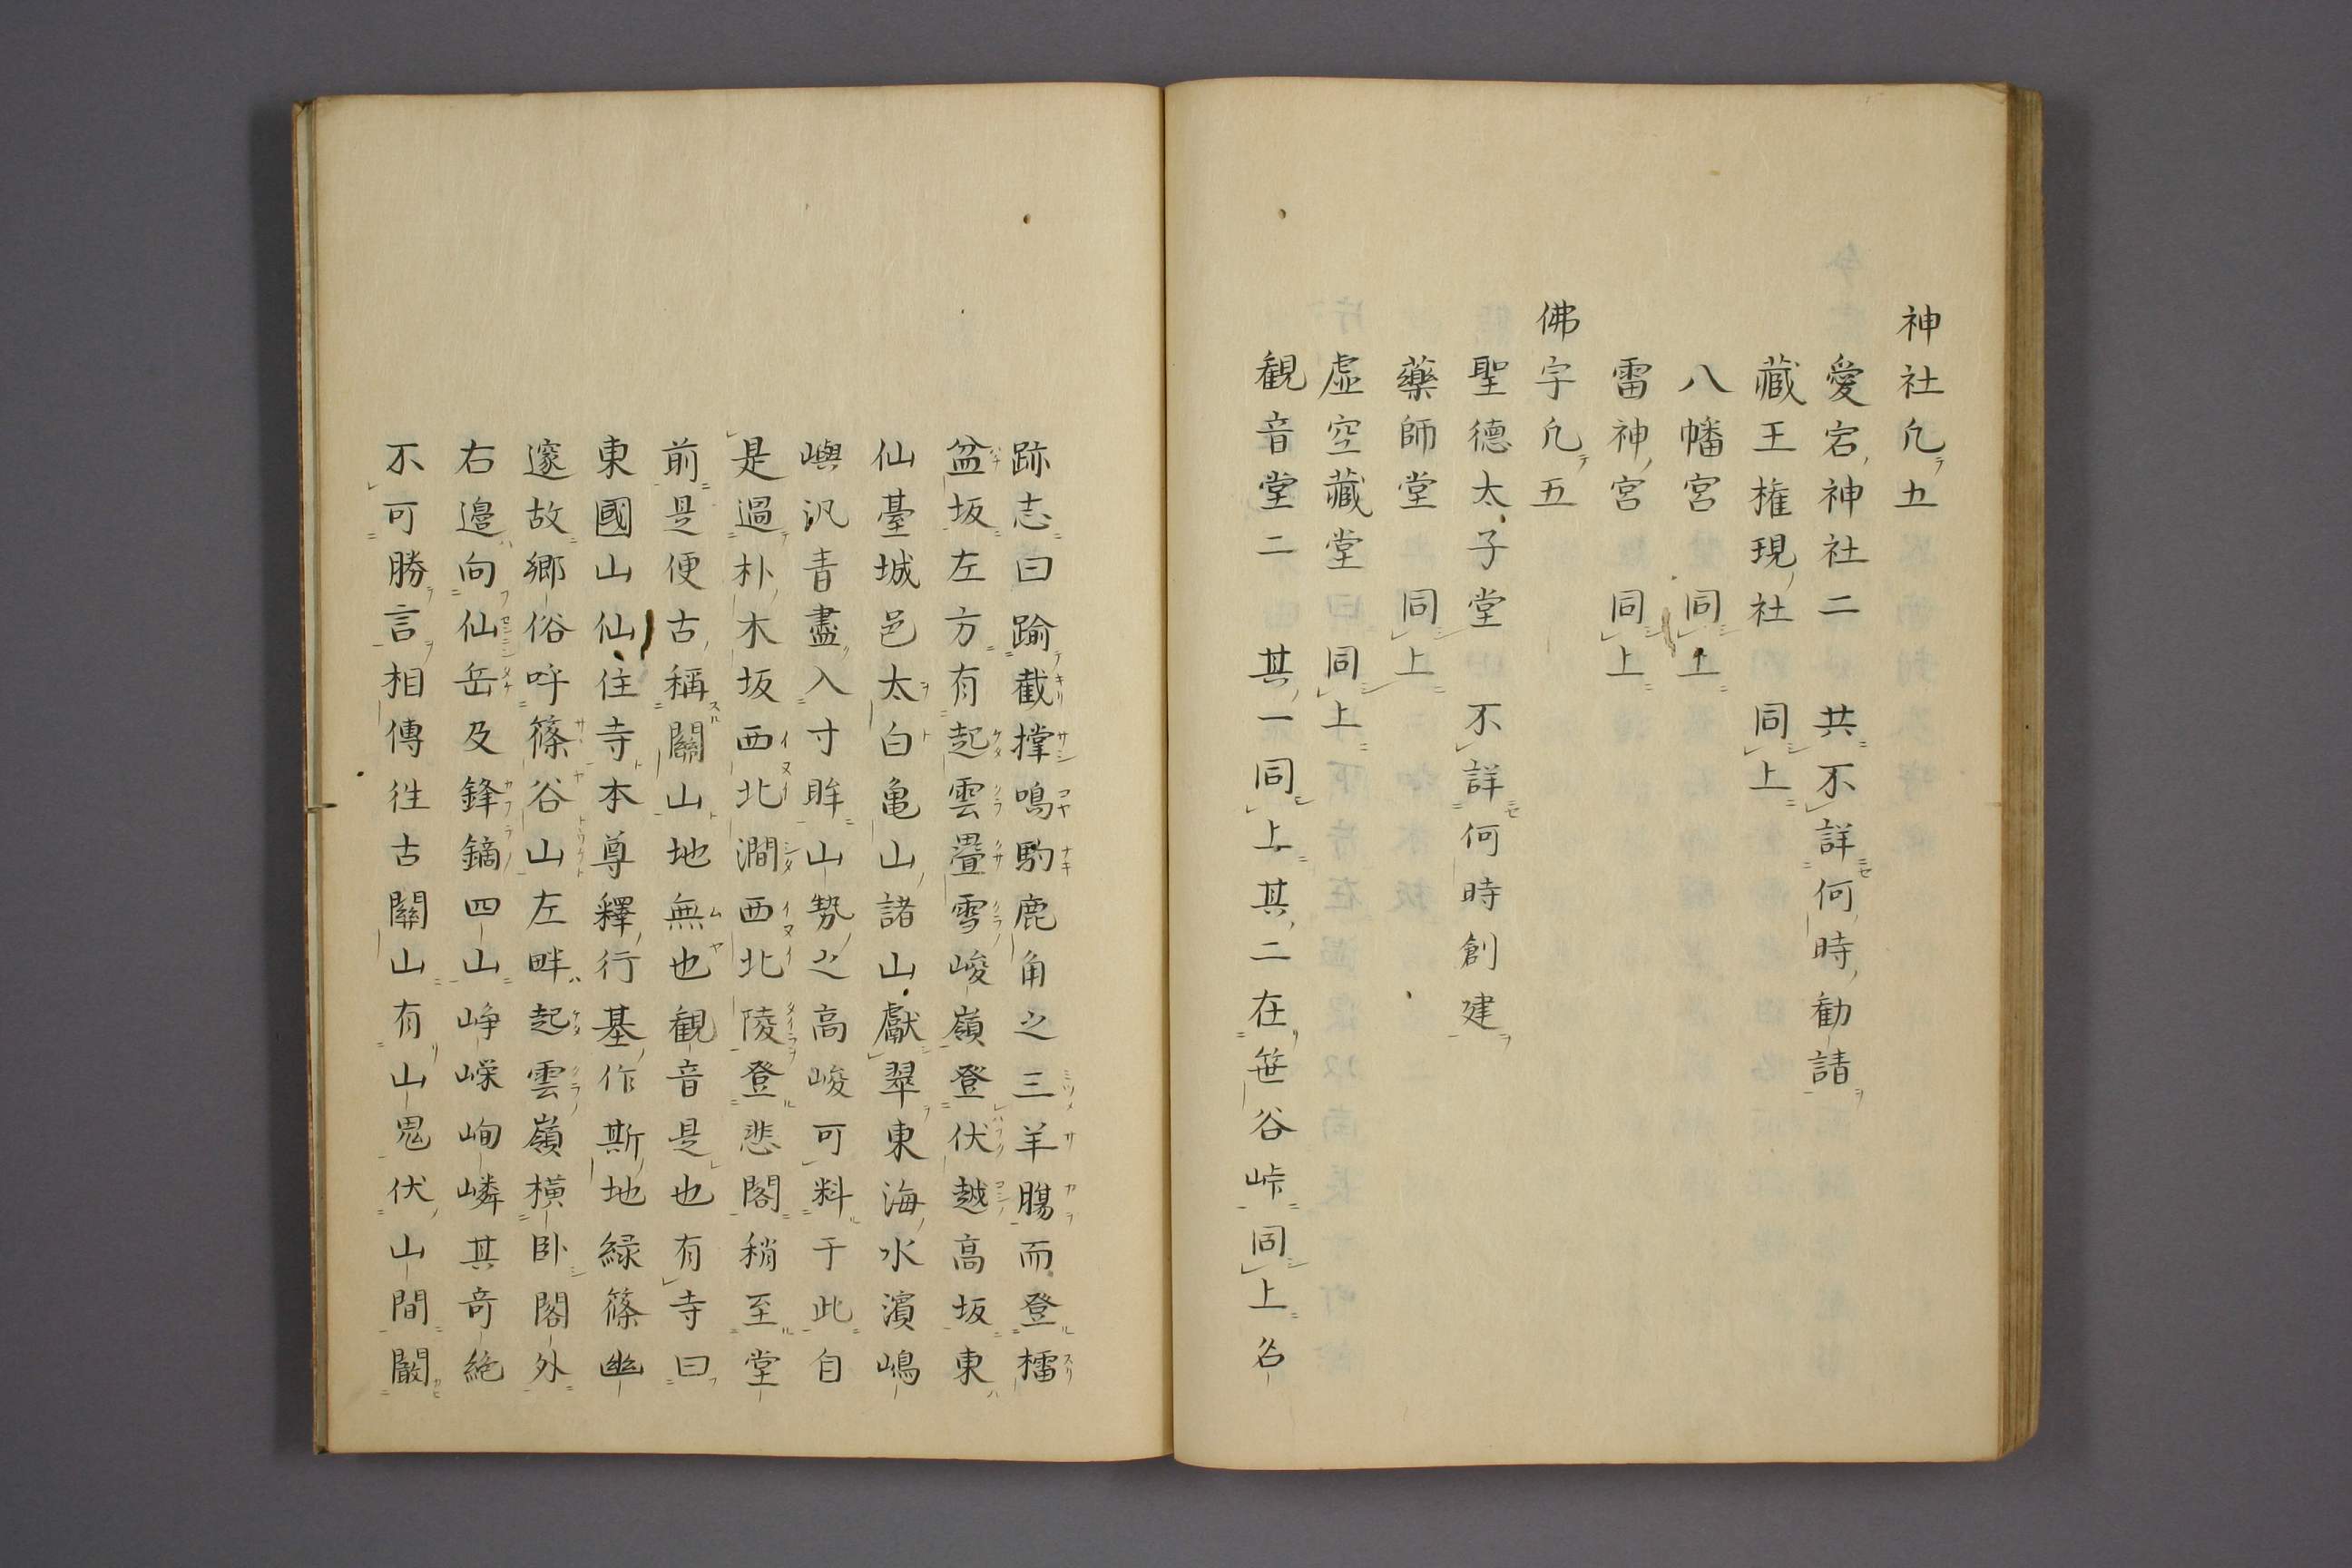 神社凢五
愛宕神社二　共不詳何時勧請
藏王権現社　同上
八幡宮　同上
雷神宮　同上
佛宇凢五
聖德太子堂　不詳何時創建
藥師堂　同上
虛空藏堂　同上
観音堂二　其一同上其二在笹谷峠同上名
跡志曰踰截撑鳴駒鹿角之三羊膓而登櫺
盆坂左方有起雲疊雪峻嶺登伏越高坂東
仙臺城邑太白亀山諸山獻翠東海水濱嶋
嶼汎青盡入寸眸山勢之高峻可料于此自
是過朴木坂西北澗西北陵登悲閣稍至堂
前是便古稱關山地無也観音是也有寺曰
東國山仙住寺本尊釋行基作斯地緑篠幽
邃故鄉俗呼篠谷山左畔起雲嶺橫卧閣外
右邉向仙岳及鋒鏑四山崢嶸峋嶙其奇絶
不可勝言相傳往古關山有山鬼伏山間闞